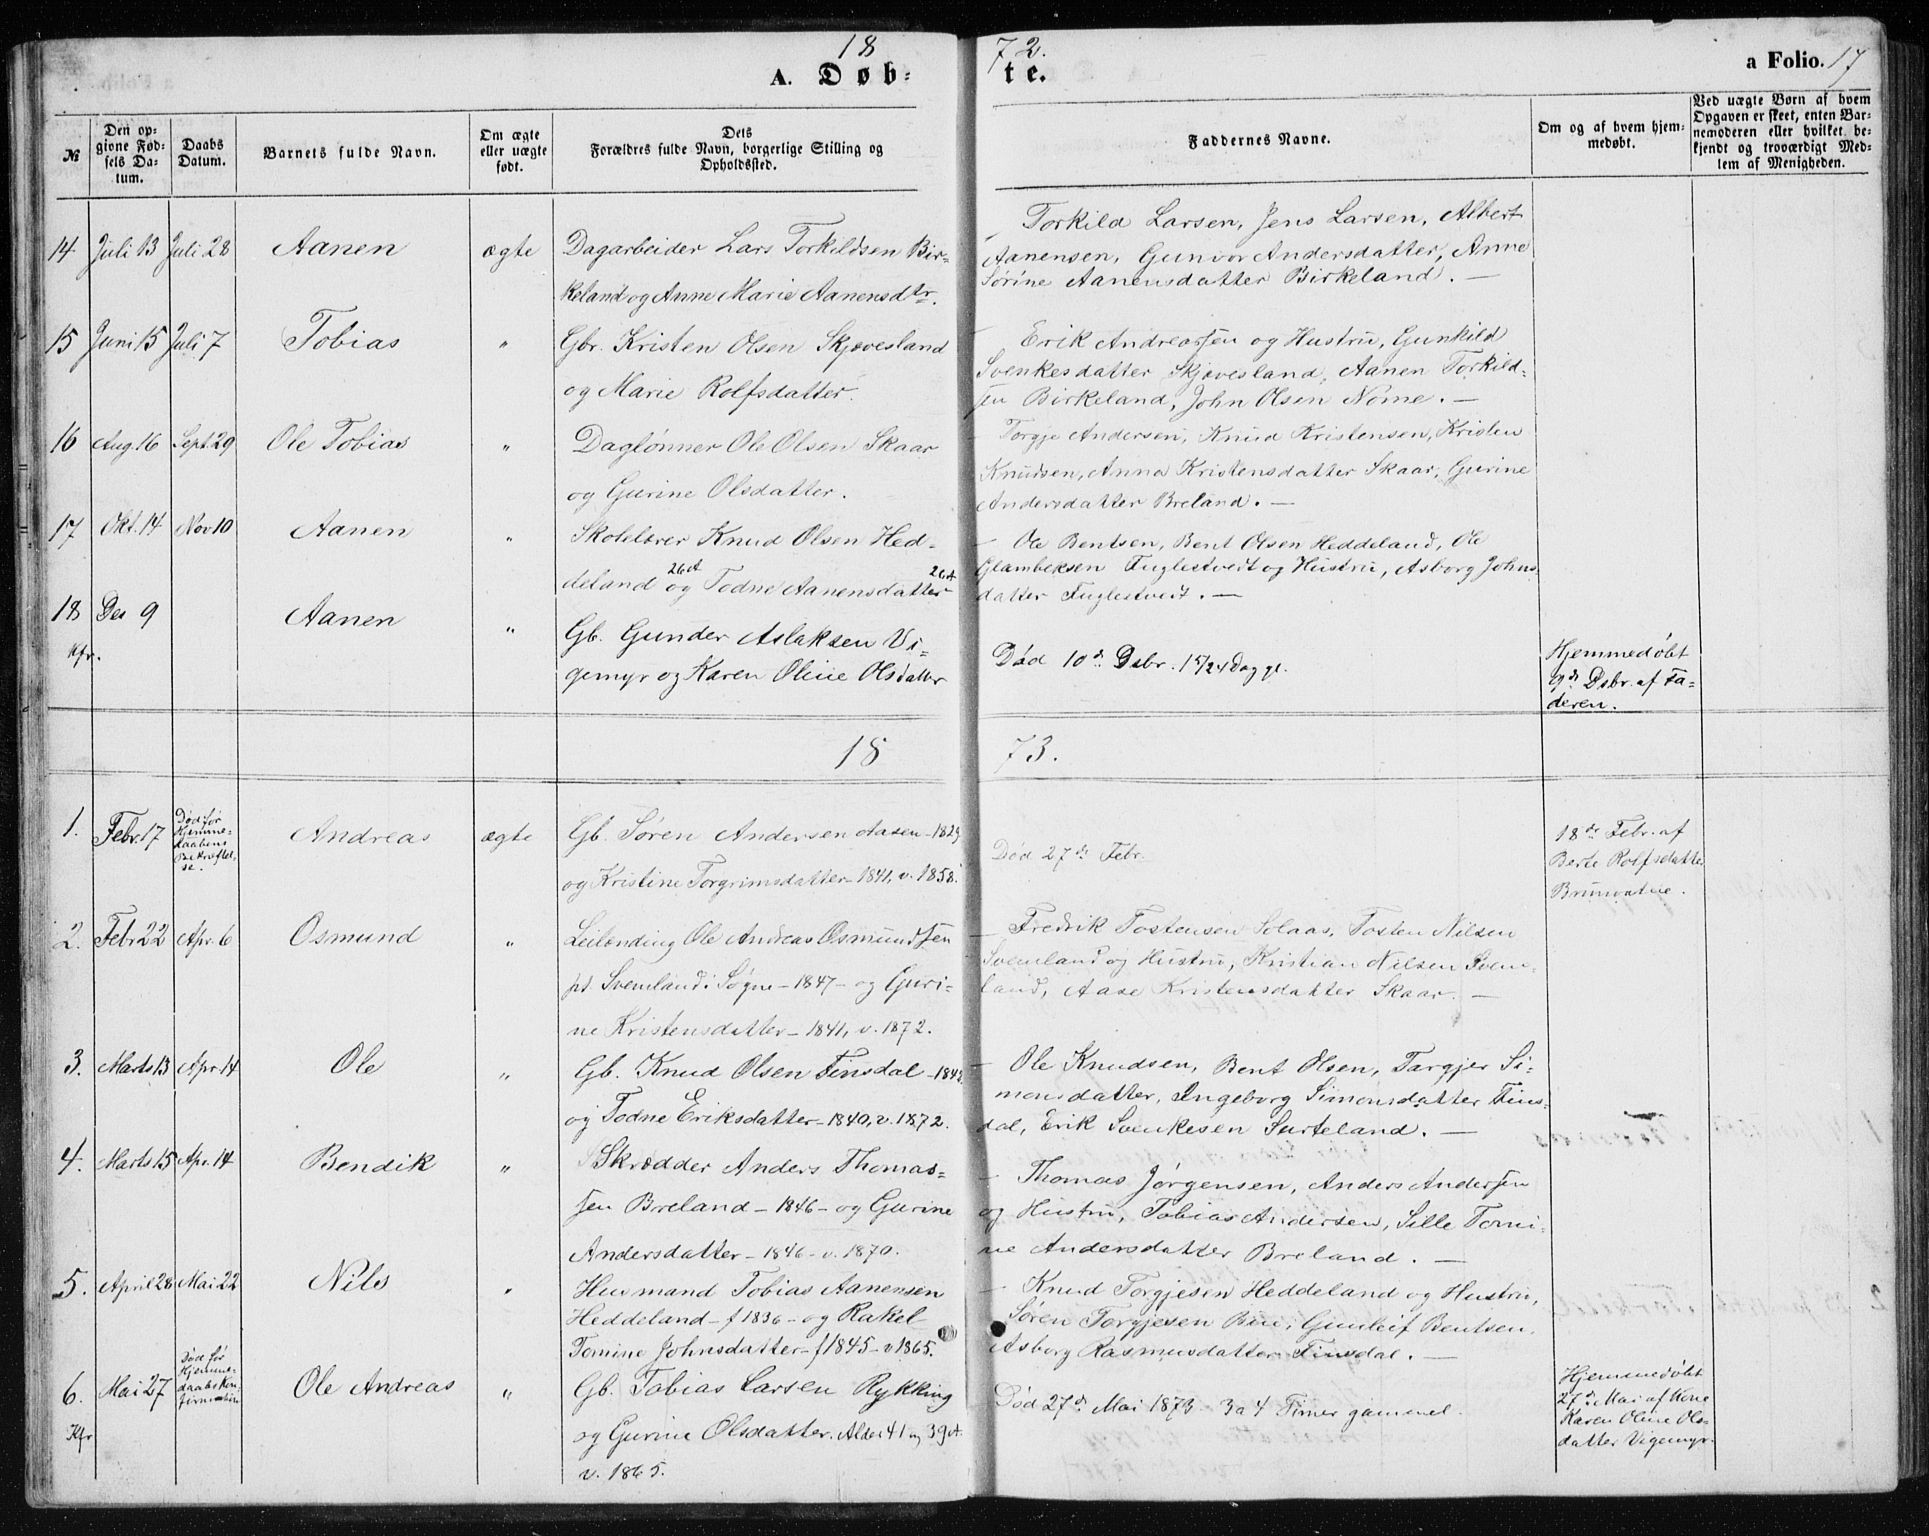 18
72.
A. Døb-
te.
a Folio. 17
№
Den op-
givne Fød-
sels Da-
tum.
Daabs
Datum.
Barnets fulde Navn.
Om ægte
eller uægte
født.
Dets
Forældres fulde Navn, borgerlige Stilling og
Opholdssted.
Faddernes Navne.
Om og af hvem hjem-
medøbt.
Ved uægte Børn af hvem
Opgaven er skeet, enten Bar-
nemoderen eller hvilket be-
kjendt og troværdigt Med-
lem af Menigheden.
14 Juli 13 Juli 28 Aanen ægte
Dagarbeider Lars Torkildsen Bir-
keland og Anne Marie Aanensdtr.
Torkild Larsen, Jens Larsen, Albert
Aanensen, Gunvor Andersdatter, Anne
Sørine Aanensdatter Birkeland. —
15 Juni 15 Juli 7 Tobias "
Gbr. Kristen Olsen Skjævesland
og Marie Rolfsdatter.
- Erik Andreassen og Hustru, Gunhild
Svenkesdatter Skjævesland, Aanen Torkild-
sen Birkeland, John Olsen Nome. —
16 Aug. 16 Sept. 29 Ole Tobias "
Daglønner Ole Olsen Skaar
og Gurine Olsdatter.
- Torgje Andersen, Knud Kristensen, Kristen
Knudsen, Anna Kristensdatter Skaar, Gurine
Andersdatter Breland. —
17 Okt. 14 Nov 10 Aanen "
Skolelærer Knud Olsen Hed-
deland 26 A og Todne Aanensdatter 26 A
- Ole Bentsen, Bent Olsen Heddeland, Ole
Glambeksen Fuglestvedt og Hustru, Asborg Johns-
datter Fuglestvedt. —
18 Des 9 Aanen "
Kfr.
Gb. Gunder Aslaksen Vi-
gemyr og Karen Oline Olsdatter
Død 10de Dsbr. 15/24 Dag gl.
Hjemmedøbt
9de Dsbr. af Fa-
deren.
18
73.
1. Febr. 17
Død før
Hjemme-
daabens
Bekræftel-
se.
Andreas ægte
Gb. Søren Andersen Aasen - 1829
og Kristine Torgrimsdatter - 1841, v. 1858.
Død 27de Febr.
18de Febr. af
Berte Rolfsdatter
Brunvatne.
2. Febr 22 Apr. 6 Osmund "
Leilænding Ole Andreas Osmundsen
pt. Svenland i Søgne - 1847 - og Guri-
ne Kristensdatter - 1841, v. 1872.
- Fredrik Tostensen Solaas, Tosten Nilsen
Svenland og Hustru, Kristian Nilsen Sven-
land, Aase Kristensdatter Skaar. —
3. Marts 13 Apr. 14 Ole "
Gb. Knud Olsen Finsdal - 1843
og Todne Eriksdatter - 1840, v. 1872.
- Ole Knudsen, Bent Olsen, Targjer Si-
monsdatter, Ingeborg Simonsdatter Fins-
dal, Erik Svenkesen Surteland. —
4. Marts 15 Apr. 14 Bendik "
Skrædder Anders Thomas-
sen Breland - 1846 - og Gurine
Andersdatter - 1846 - v. 1870.
- Thomas Jørgensen, Anders Andersen
og Hustru, Tobias Andersen, Sille Tomi-
ne Andersdatter Breland. —
5. April 28 Mai 22 Nils "
Husmand Tobias Aanensen
Heddeland - f 1836 - og Rakel
Tomine Johnsdatter - f 1845 - v 1865.
- Knud Torgjesen Heddeland og Hustru,
Søren Torgjesen Bue, Gunleif Bentsen,
Asborg Rasmusdatter Finsdal. —
6. Mai 27
Kfr
Død før
Hjemme-
daabs Kon-
firmation
Ole Andreas "
Gb. Tobias Larsen Rykking
og Gurine Olsdatter. Alder 41 og 39 A.
v. 1865.
Død 27de Mai 1873 3 a 4 Timer gammel.
Hjemmedøbt
27de Mai af Kone
Karen Oline Ols-
datter Vigemyr.